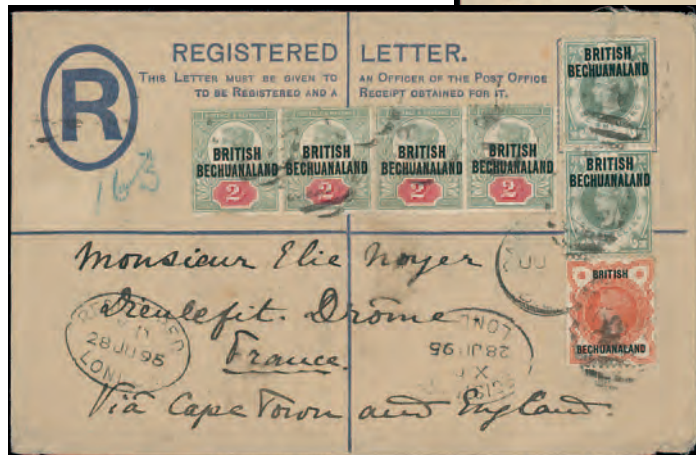 REGISTERED LETTER.
THIS LETTER MUST BE GIVEN TO AN OFFICER OF THE POST OFFICE
TO BE REGISTERED AND A RECEIPT OBTAINED FOR IT.
R
163
BRITISH
BECHUANALAND
2
BRITISH
BECHUANALAND
2
BRITISH
BECHUANALAND
2
BRITISH
BECHUANALAND
2
BRITISH
BECHUANALAND
BRITISH
BECHUANALAND
BRITISH
BECHUANALAND
Monsieur Elie Noyer
Dieulefit. Drôme
France.
Via Cape Town and England.
28 JU 95
LOND
28 JU 95
LOND